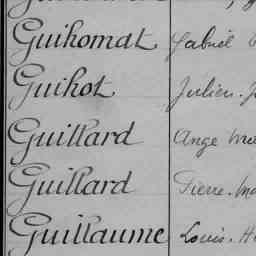 Guihomat Gabriel
Guihot Julien-J
Guillard Ange
Guillard Pierre-Ma
Guillaume Louis-H